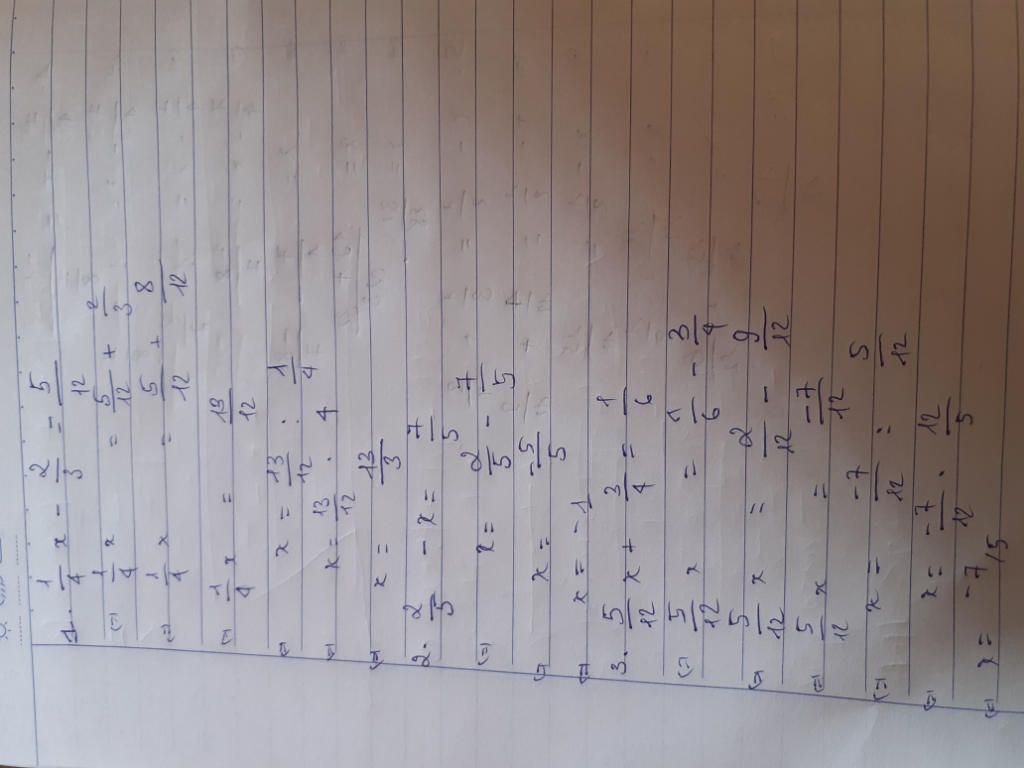 1. 1/4 x - 2/3 = 5/12
(=) 1/4 x = 5/12 + 2/3
(=) 1/4 x = 5/12 + 8/12
(=) 1/4 x = 13/12
(=) x = 13/12 : 1/4
(=) x = 13/12 . 4
(=) x = 13/3
2. 2/5 - x = 7/5
(=) x = 2/5 - 7/5
(=) x = -5/5
(=) x = -1
3. 5/12 x + 3/4 = 1/6
(=) 5/12 x = 1/6 - 3/4
(=) 5/12 x = 2/12 - 9/12
(=) 5/12 x = -7/12
(=) x = -7/12 : 5/12
(=) x = -7/12 . 12/5
(=) x = -7/5